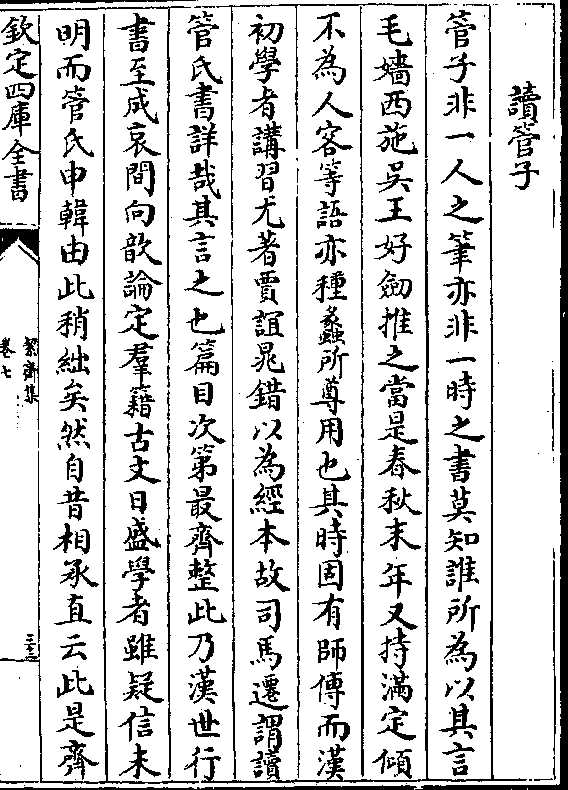 讀管子
管子非一人之筆亦非一時之書莫知誰所為以其言
毛嬙西施吳王好劒推之當是春秋末年又持滿定傾
不為人客等語亦種蠡所尊用也其時固有師傳而漢
初學者講習尤著賈誼晁錯以為經本故司馬遷謂讀
管氏書詳哉其言之也篇目次第最齊整此乃漢世行
書至成哀間向歆論定羣籍古文日盛學者雖疑信未
明而管氏申韓由此稍絀矣然自昔相承直云此是齊
欽定四庫全書
絜齋集
卷七
三十三